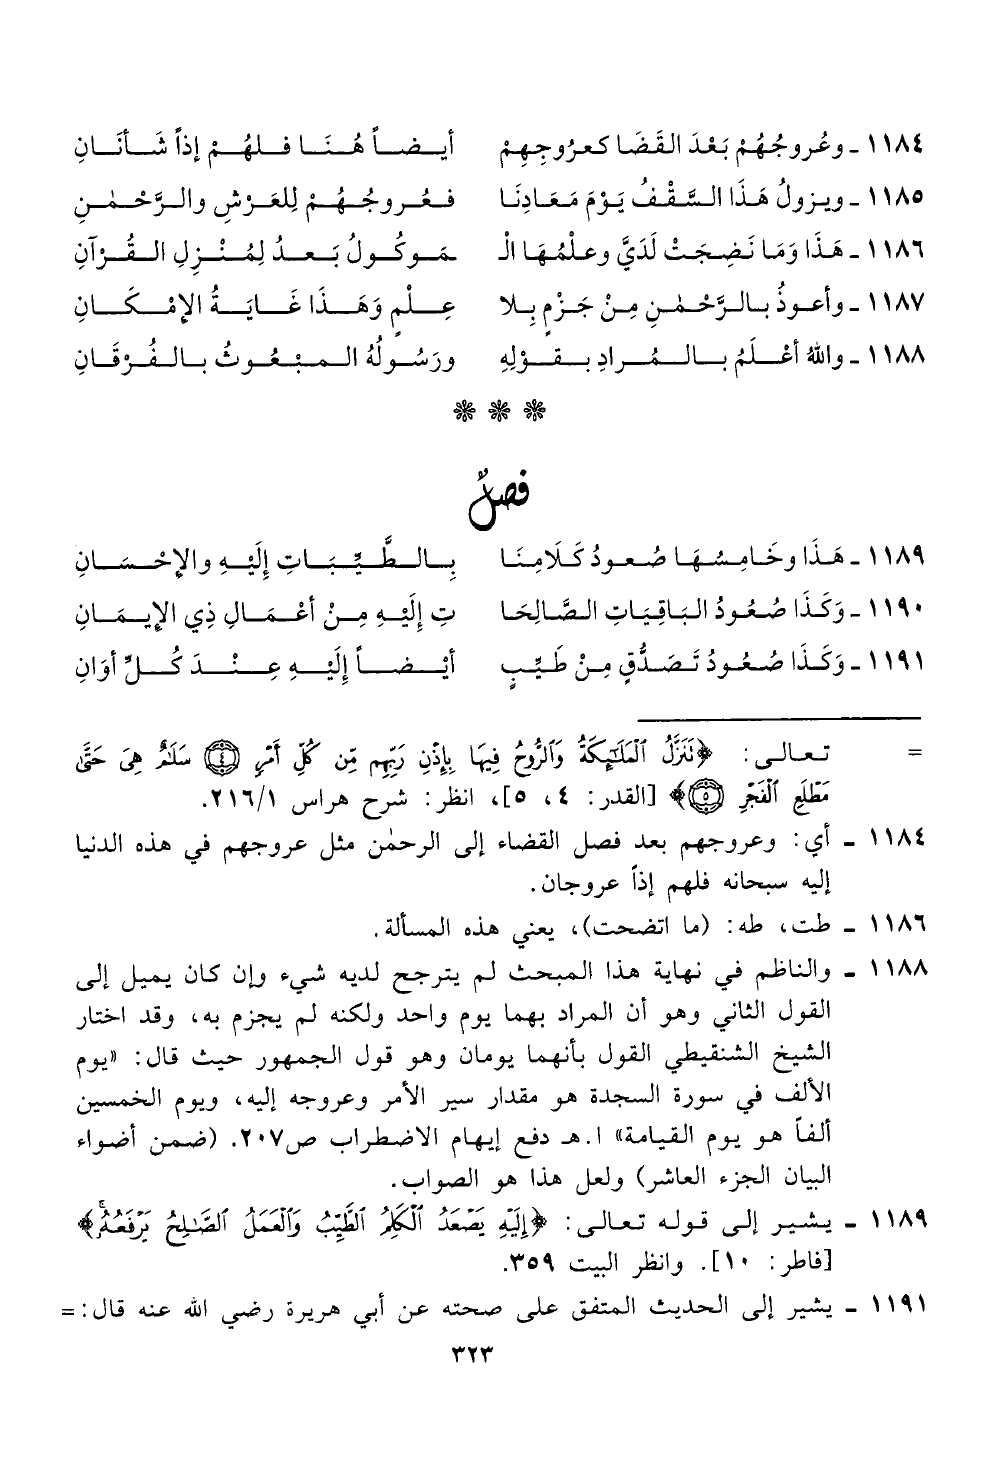 ١١٨٤ ـ وعُروجُهُمْ بَعْدَ القَضَا كعرُوجِهِمْ أيضاً هُنَا فلهُمْ إذاً شَأنَانِ
١١٨٥ ـ ويزولُ هَذَا السَّقْفُ يَوْمَ مَعَادِنَا فعُروجُهُمْ لِلعَرْشِ والرَّحْمٰنِ
١١٨٦ ـ هَذَا وَمَا نَضِجَتْ لَدَيَّ وعلْمُهَا الْـ ـمَوكُولُ بَعدُ لِمُنْزِلِ القُرْآنِ
١١٨٧ ـ وأعوذُ بالرَّحْمٰنِ مِنْ جَزْمٍ بِلَا عِلْمٍ وَهَذَا غَايَةُ الإمْكَانِ
١١٨٨ ـ واللهُ أعْلَمُ بالمُرادِ بقوْلِهِ ورَسُولُهُ المبْعُوثُ بالفُرْقَانِ
❊ ❊ ❊
فصلٌ
١١٨٩ ـ هَذَا وخَامِسُهَا صُعودُ كَلَامِنَا بِالطَّيِّبَاتِ إلَيْهِ والإحْسَانِ
١١٩٠ ـ وَكَذَا صُعُودُ البَاقِيَاتِ الصَّالِحَا تِ إلَيْهِ مِنْ أعْمَالِ ذِي الإيمَانِ
١١٩١ ـ وَكَذَا صُعُودُ تَصَدُّقٍ مِنْ طَيِّبٍ أيْضاً إلَيْهِ عِنْدَ كُلِّ أوَانِ
= تعالى: ﴿تَنَزَّلُ ٱلْمَلَٰٓئِكَةُ وَٱلرُّوحُ فِيهَا بِإِذْنِ رَبِّهِم مِّن كُلِّ أَمْرٍ ٤ سَلَٰمٌ هِىَ حَتَّىٰ
مَطْلَعِ ٱلْفَجْرِ ٥﴾ [القدر: ٤، ٥]، انظر: شرح هراس ٢١٦/١.
١١٨٤ ـ أي: وعروجهم بعد فصل القضاء إلى الرحمٰن مثل عروجهم في هذه الدنيا
إليه سبحانه فلهم إذاً عروجان.
١١٨٦ ـ طت، طه: (ما اتضحت)، يعني هذه المسألة.
١١٨٨ ـ والناظم في نهاية هذا المبحث لم يترجح لديه شيء وإن كان يميل إلى
القول الثاني وهو أن المراد بهما يوم واحد ولكنه لم يجزم به، وقد اختار
الشيخ الشنقيطي القول بأنهما يومان وهو قول الجمهور حيث قال: «يوم
الألف في سورة السجدة هو مقدار سير الأمر وعروجه إليه، ويوم الخمسين
ألفاً هو يوم القيامة» ا.هـ دفع إيهام الاضطراب ص٢٠٧. (ضمن أضواء
البيان الجزء العاشر) ولعل هذا هو الصواب.
١١٨٩ ـ يشير إلى قوله تعالى: ﴿إِلَيْهِ يَصْعَدُ ٱلْكَلِمُ ٱلطَّيِّبُ وَٱلْعَمَلُ ٱلصَّٰلِحُ يَرْفَعُهُۥ﴾
[فاطر: ١٠]. وانظر البيت ٣٥٩.
١١٩١ ـ يشير إلى الحديث المتفق على صحته عن أبي هريرة رضي الله عنه قال: =
٣٢٣